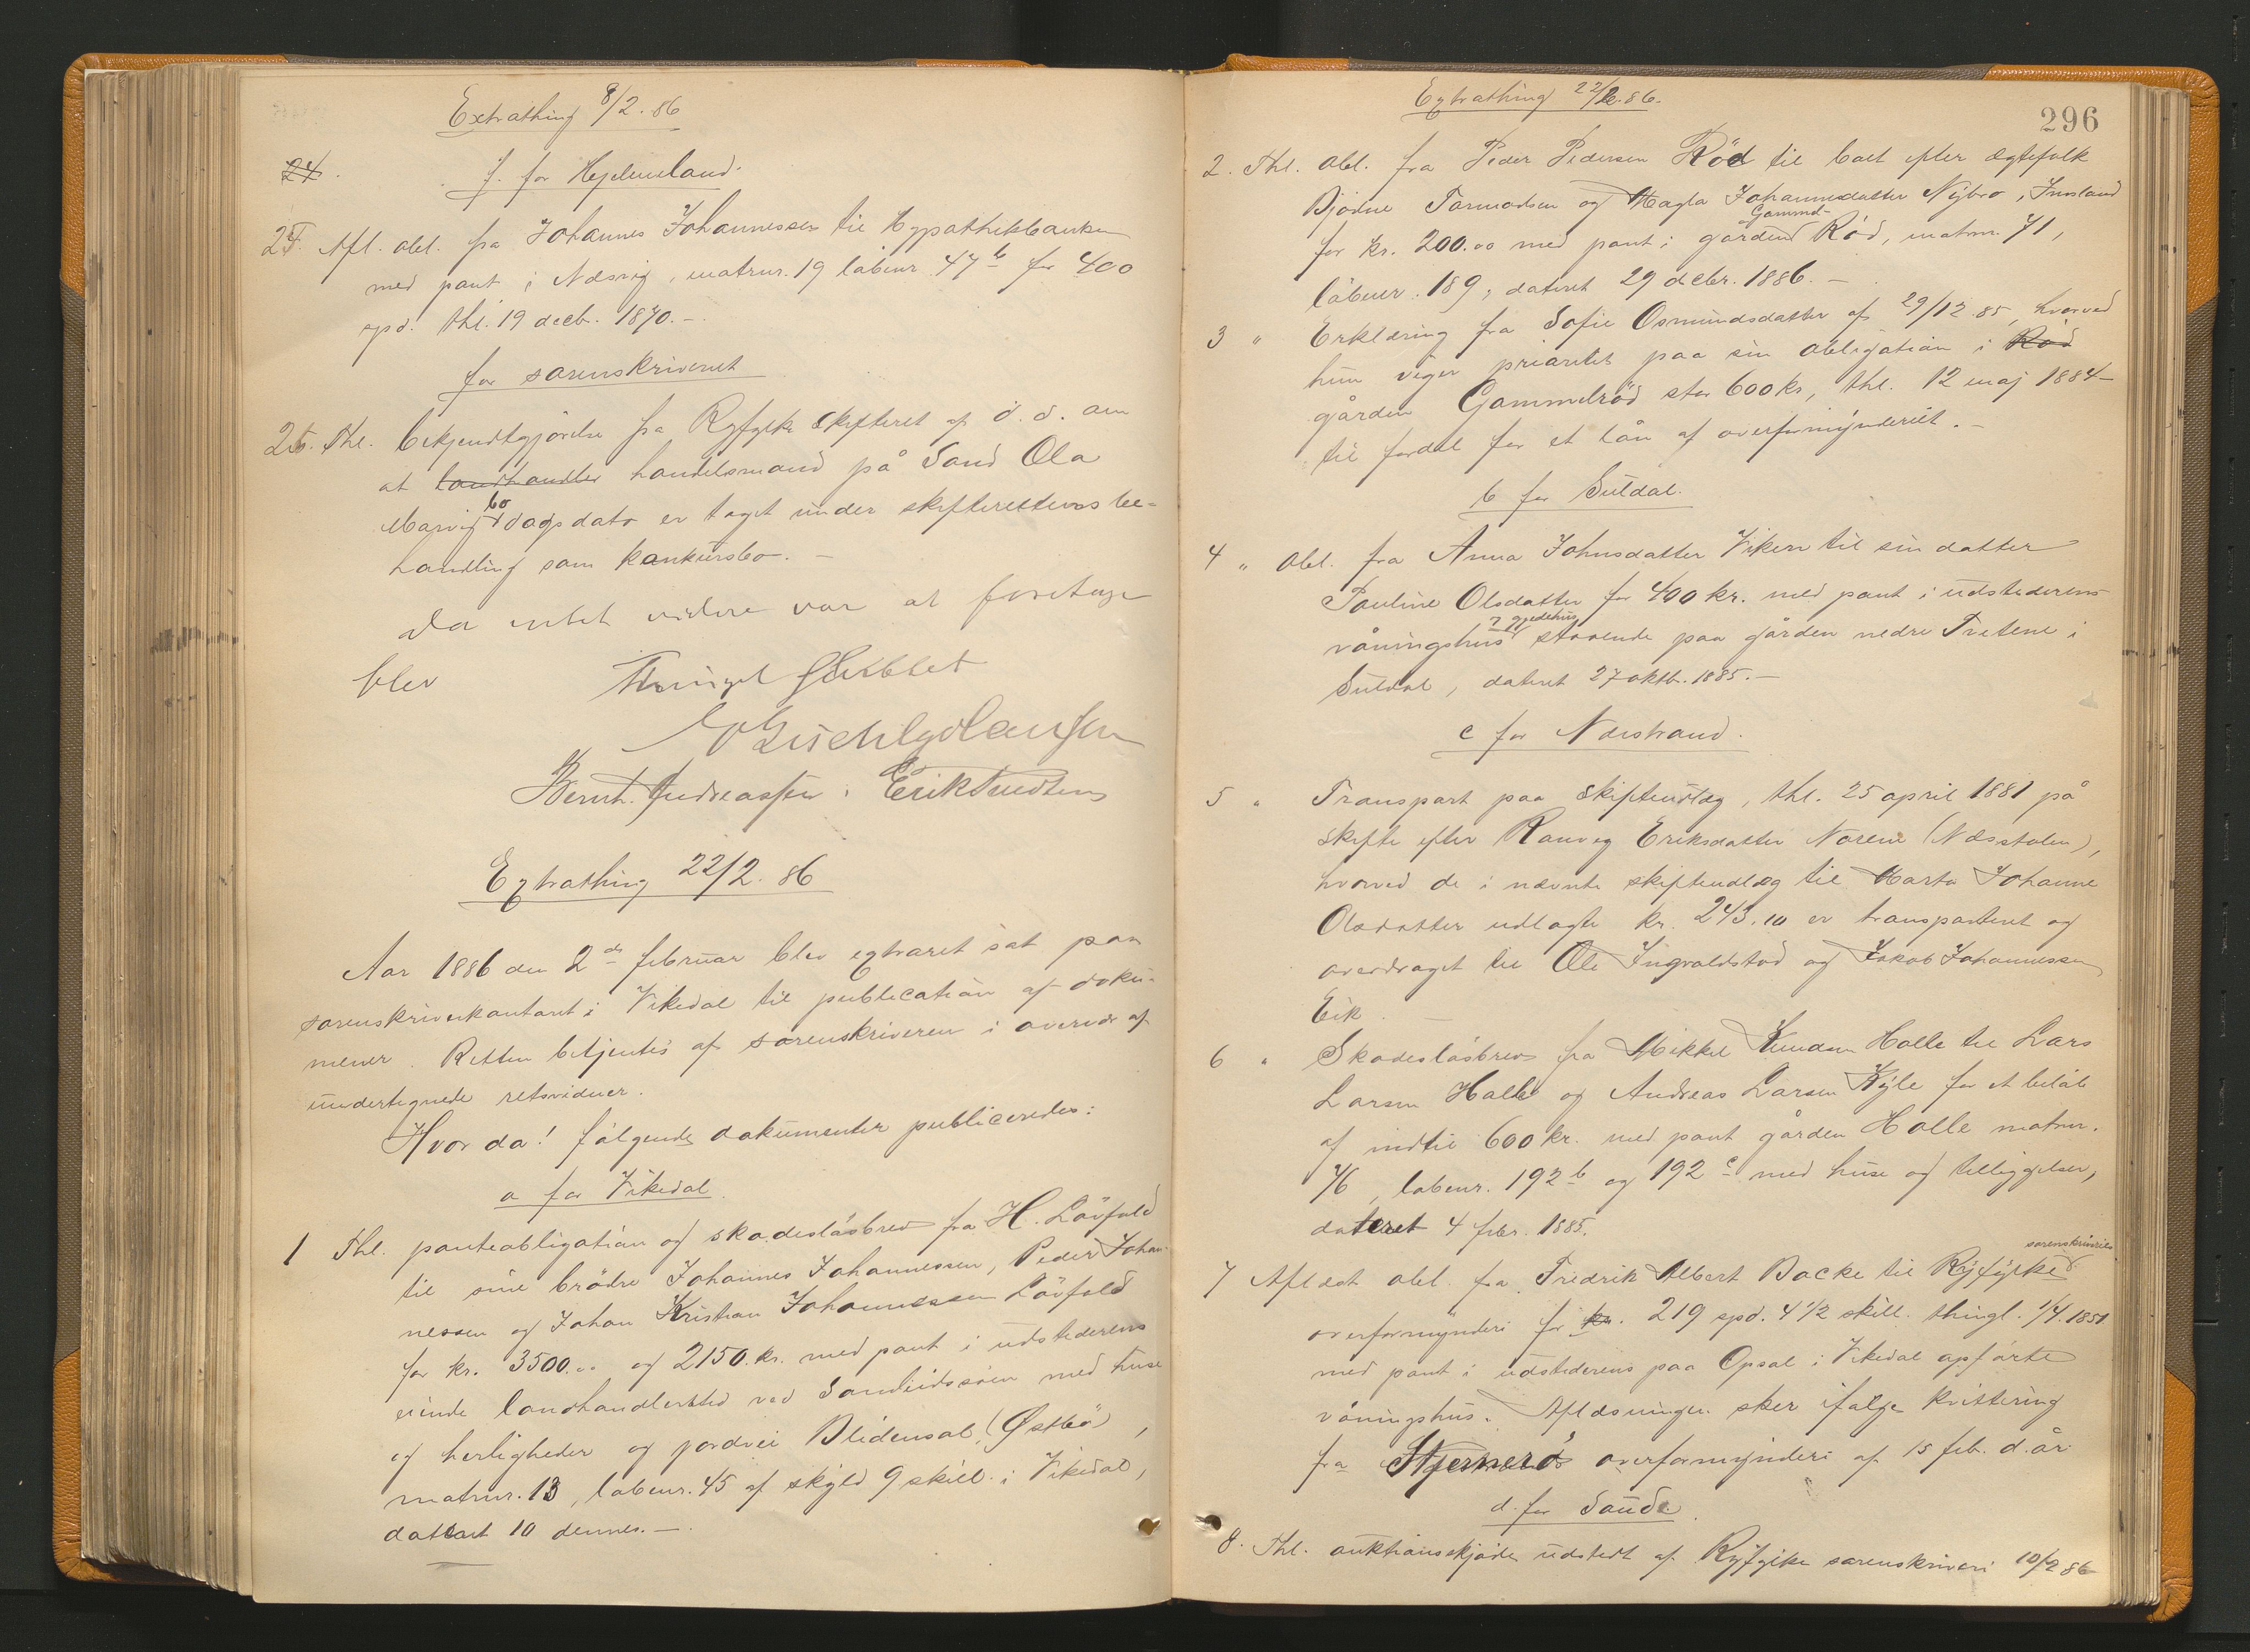 Extrathing 8/2.86
24.
f. for Hjelmeland.
25. Afl. obl. fra Johannes Johannessen til Hypothekbanken
med pant i Næsvig, matrnr. 19 löbenr. 47b for 400
spd. thl. 19 decb. 1870.-
for sorenskriveriet
26. Thl. bekjendtgjörelse fra Ryfylke skifteret af d. d. om
at landhandler handelsmand på Sand Ola
Marvig bo dags dato er taget under skifterettens be-
handling som konkursbo.-
Da intet videre var at foretage
blev Thinget sluttet
Bernt. Andreassen. Erik Knudsen
Extrathing 22/2.86
Aar 1886 den 2de februar blev extraret sat paa
sorenskriverkontoret i Vikedal til publication af doku-
menter. Retten betjentes af sorenskriveren i overvær af
undertegnede retsvidner.
Hvor da! fölgende dokumenter publiceredes:
a for Vikedal
1 Thl. panteobligation og skadeslösbrev fra H. Lövfald
til sine brödre Johannes Johannessen, Peder Johan-
nessen og Johan Kristian Johannessen Lövfald
for kr. 3500.00 og 2150.kr. med pant i udstederens
eiende landhandlersted ved Sandeidssöen med huse
og herligheder og jordvei Blidensol (Østbö),
matrnr. 13, löbenr. 45 af skyld 9 skill. i Vikedal,
dateret 10 dennes.-
Extrathing 22/2.86.
296
2. Thl. obl. fra Peder Pedersen Röd til boet efter ægtefolk
Björne Tormodsen og Magla Johannesdatter Nybro, Imsland
for kr. 200.00 med pant i gården Gammel- Röd, matrnr. 71,
löbenr. 189, dateret 29 decbr. 1886.-
3 " Erklæring fra Sofie Osmundsdatter af 29/12.85, hvorved
hun viger prioritet paa sin obligation i Röd
gården Gammelröd stor 600 kr, thl. 12 maj 1884
til fordel for et lån af overformynderiet.-
b for Suldal.
4 " Obl. fra Anna Johnsdatter Viken til sin datter
Pauline Olsdatter for 400 kr. med pant i udstederens
våningshus & gjedehus staaende paa gården nedre Tvetene i
Suldal, dateret 27 oktb. 1885.-
c for Nærstrand.
5 " Transport paa skifteudlæg, thl. 25 april 1881 på
skifte efter Ranveg Eriksdatter Norene (Næsstølen),
hvorved de i nævnte skifteudlæg til Marta Johanne
Olsdatter udlagte kr. 243.10 er transporteret og
overdraget til Ole Ingvaldstad og Jakob Johannessen
Eik.-
6 " Skadeslösbrev fra Mikkel Knudsen Halle til Lars
Larsen Halle og Andreas Larsen Kyle for et belöb
af indtil 600 kr. med pant gården Halle matrnr.
76, löbenr. 192b og 192c med huse og tilliggelser,
dateret 4 febr. 1885.
7 Aflæst obl. fra Fredrik Albert Backe til Ryfylke sorenskriveries
overformynderi for kr. 219 spd. 4 1/2 skill. thingl. 1/4.1851
med pant i udstederens paa Opsal i Vikedal opförte
våningshus. Aflæsningen sker ifölge kvittering
fra Stjernerö overformynderi af 15 feb. d.år.
d. for Saude.
8. Thl. auktionsskjöde udstedt af Ryfylke sorenskriveri 10/2 86